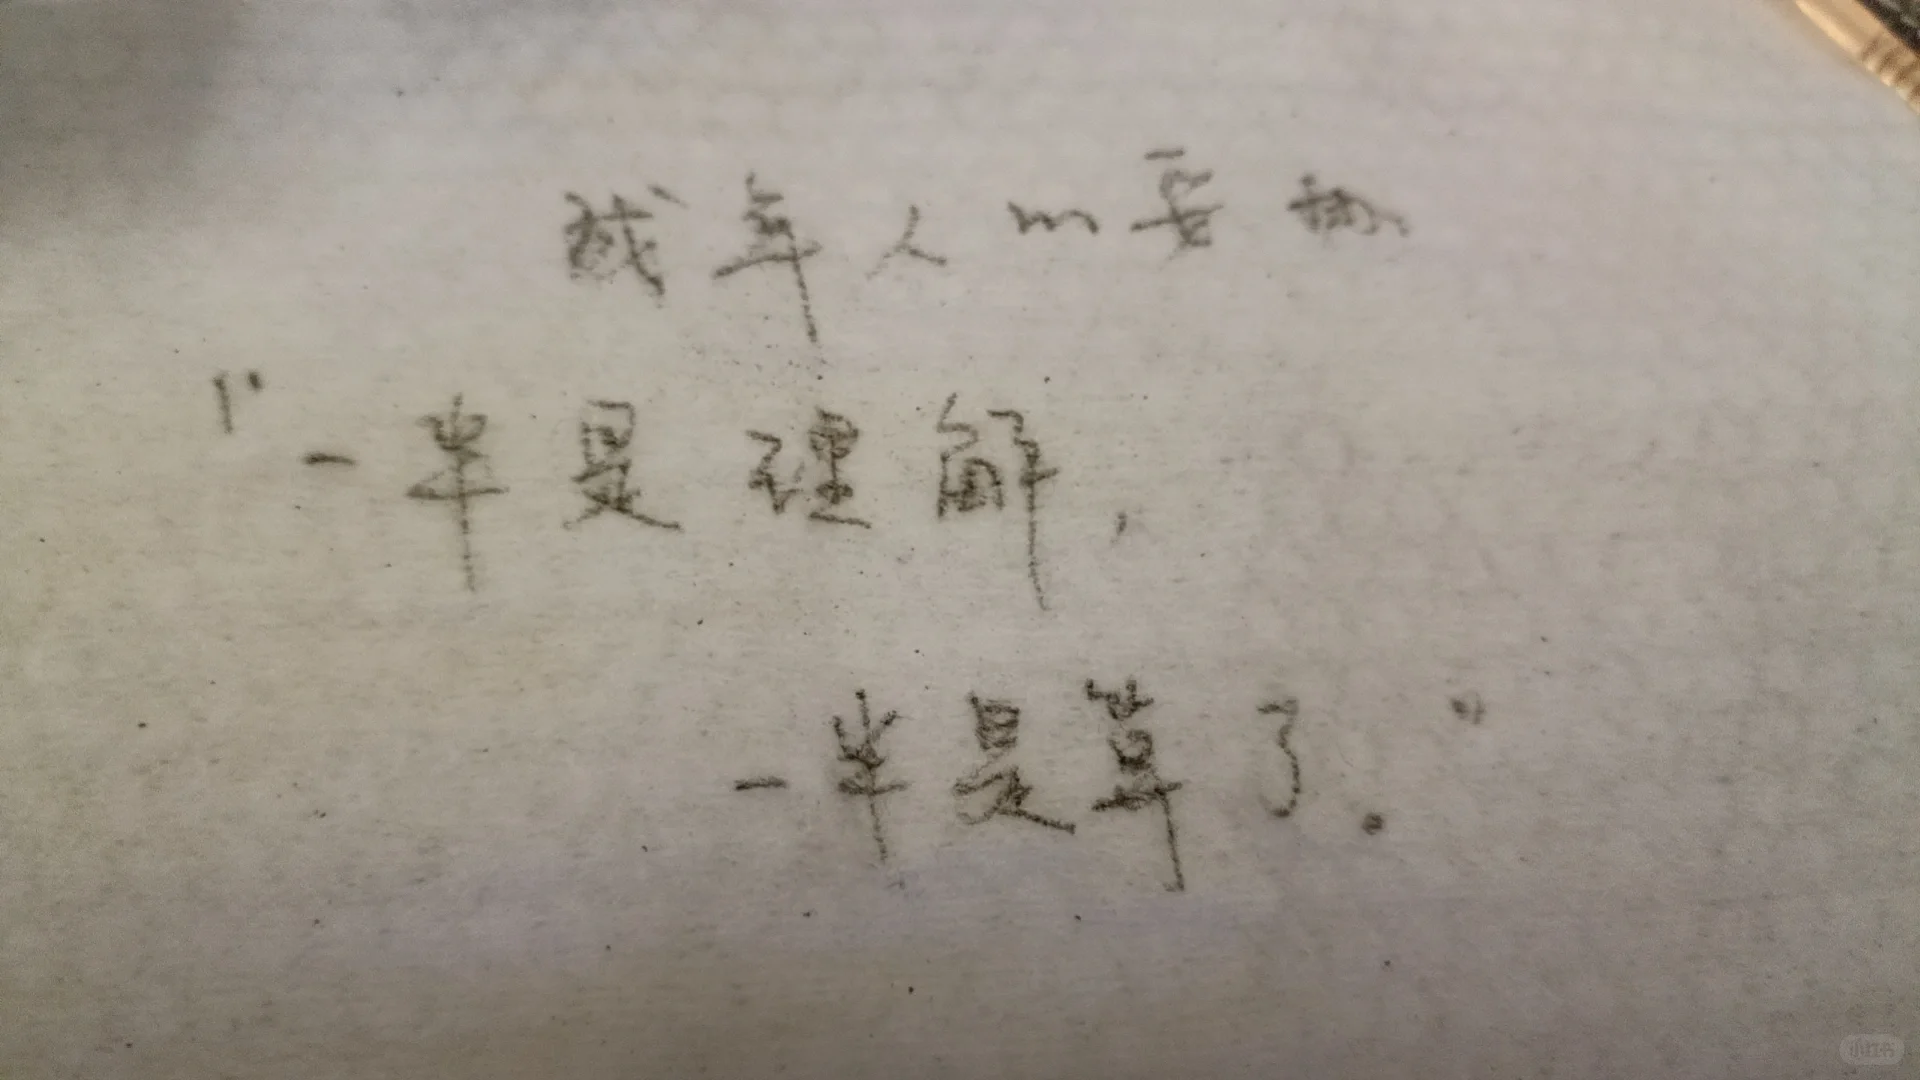 成年人的
“一半是理解，
一半是算了。”
小红书